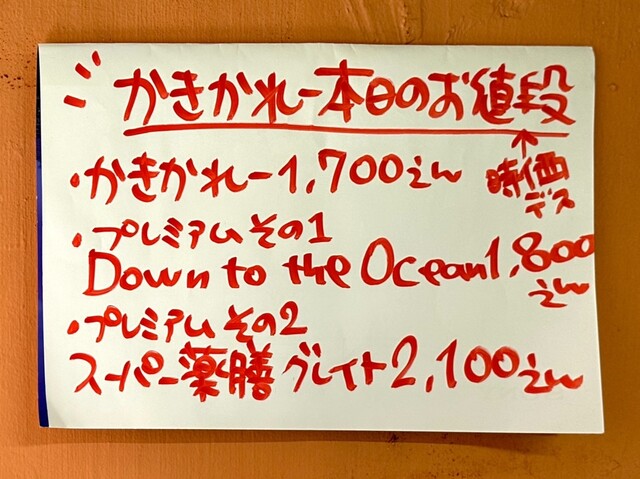 かきかれー本日のお値段
↑
時価
デス
・かきかれー1,700えん
・プレミアムその1
Down to the Ocean1,800
えん
・プレミアムその2
スーパー薬膳グレイト2,100えん